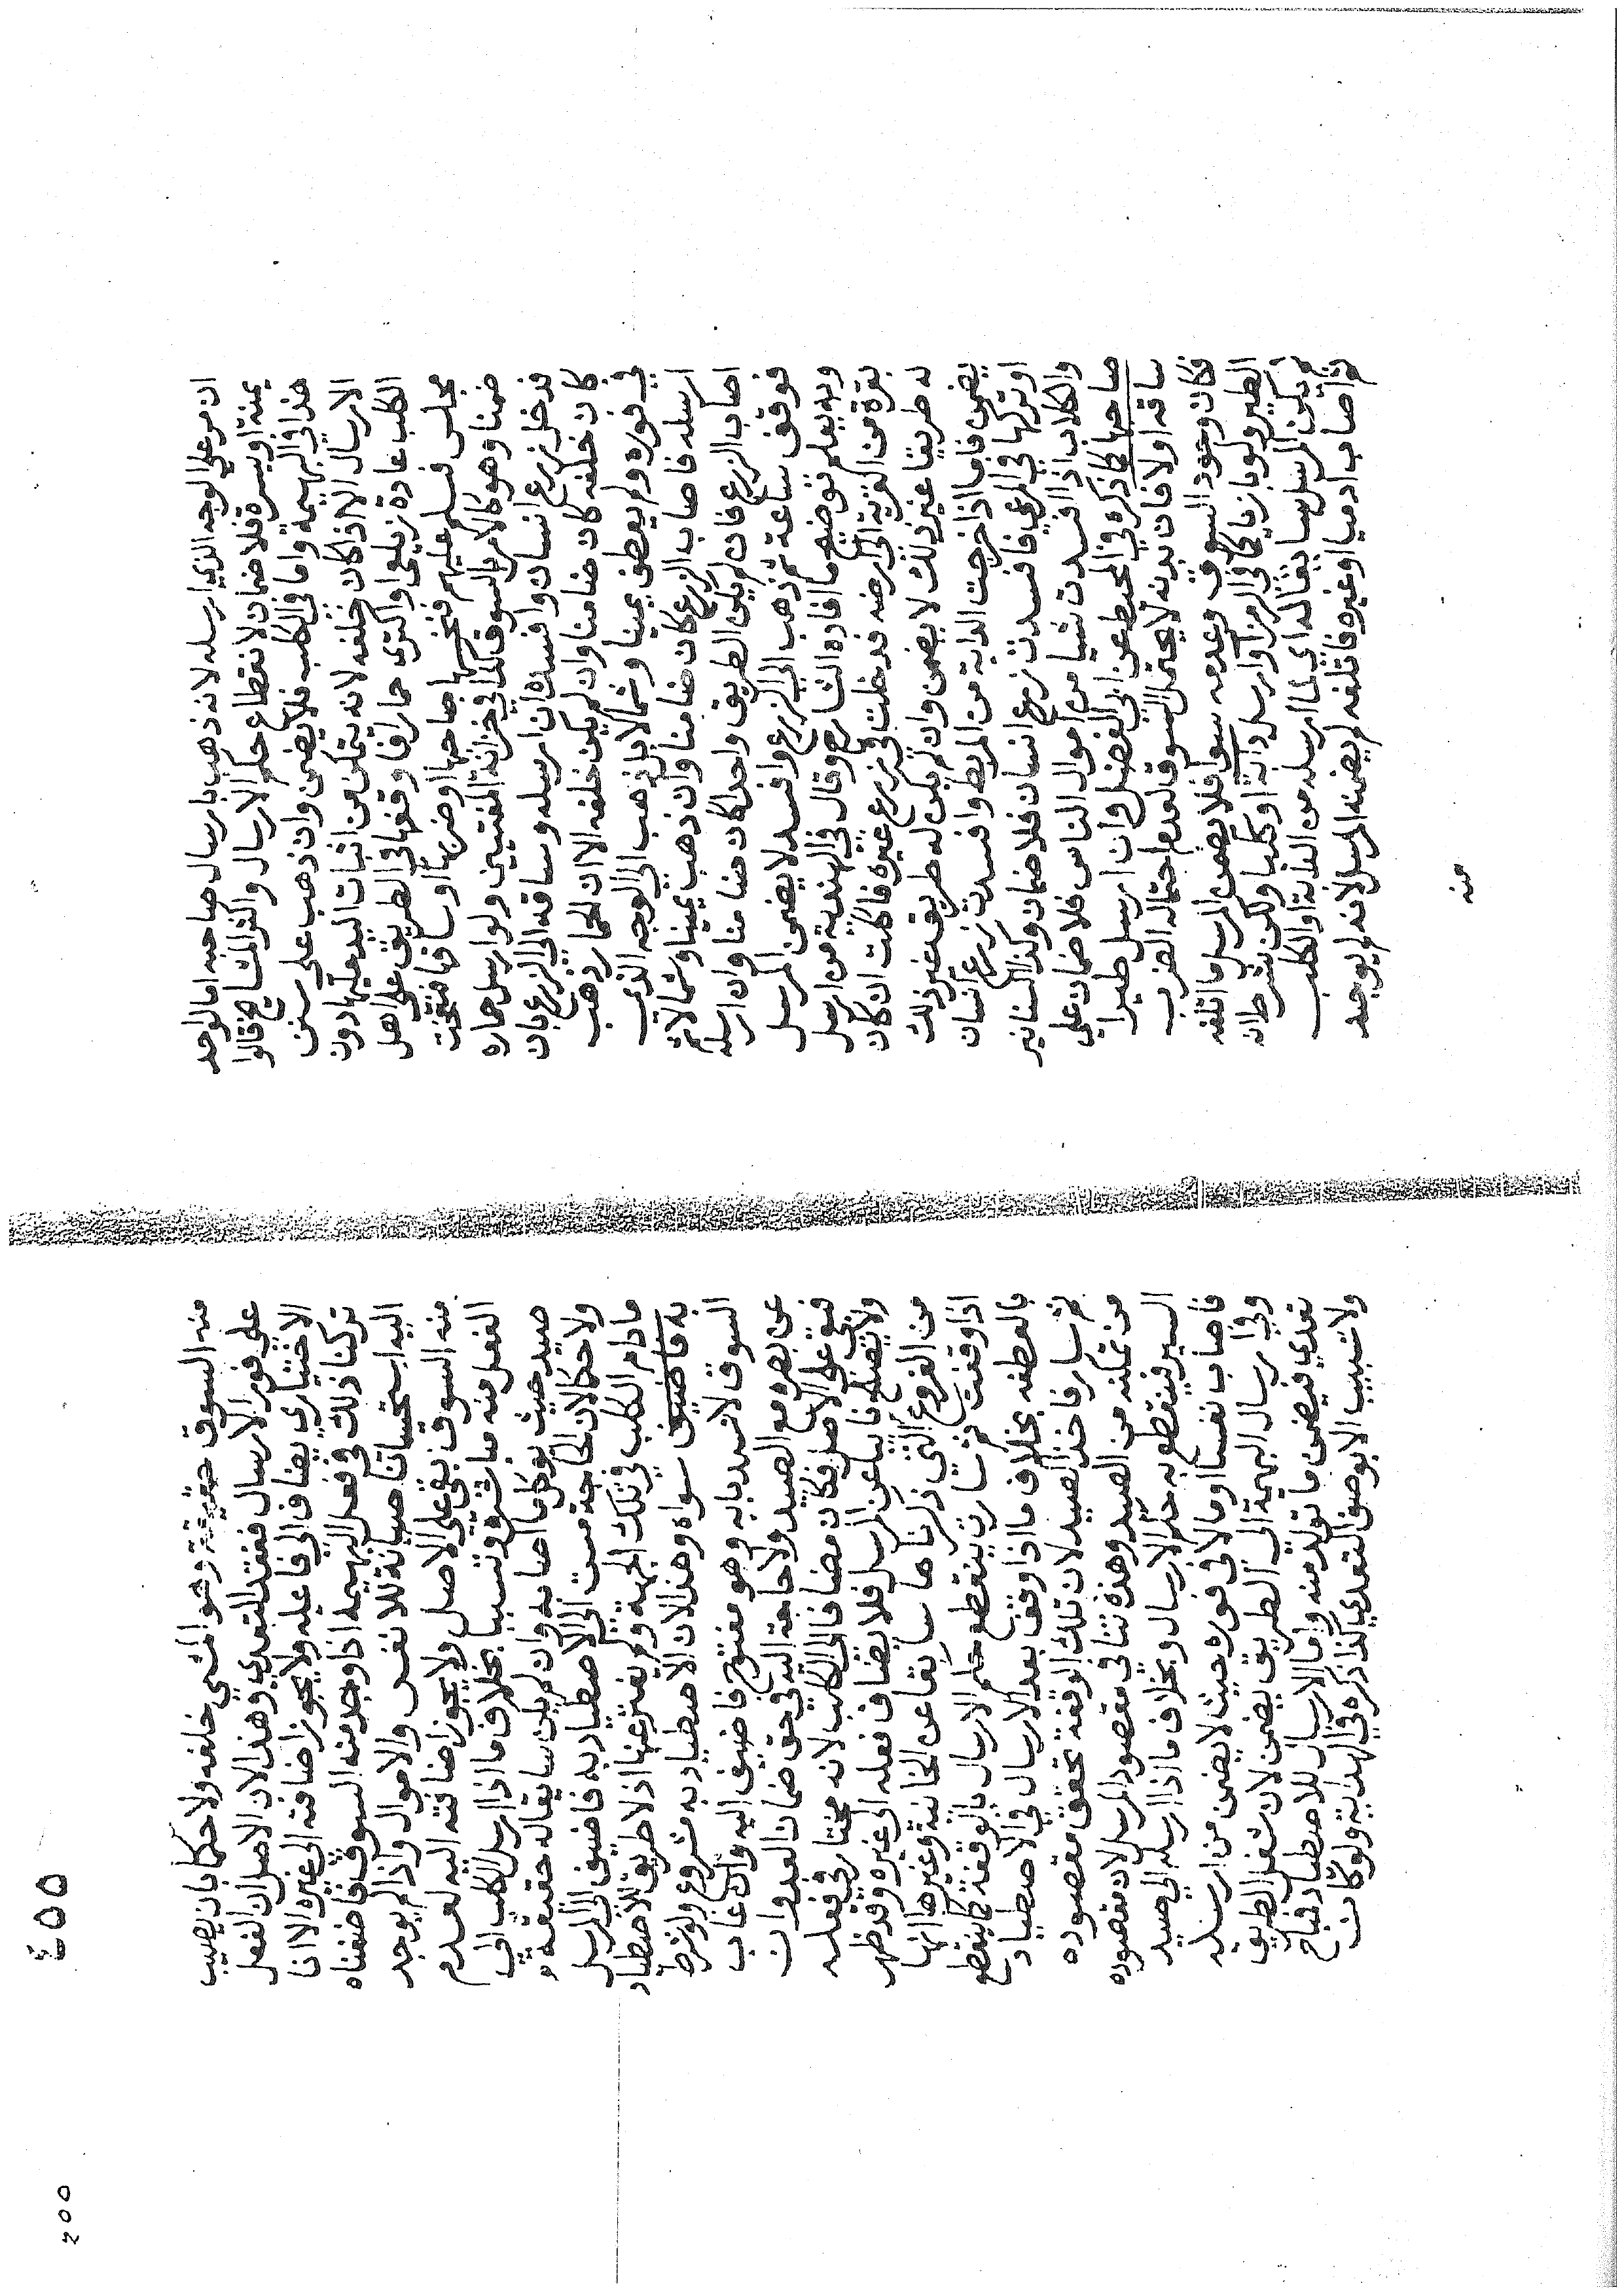 ان مر على الوجه الذي ارسله لانه ذهب بارسال صاحبه اما لو اخد
يمنة او يسرة فلا ضمان لانقطاع حكم الارسال المشايخ قالوا
هذا في البهيمة واما في الكلب فلا يضمن وان ذهب على سنن
الارسال الا اذا كان خلفه لانه يتمكن من اثبات اليد عليها دون
الكلب عادة زيلعي واكترى حمارا فاوقفها في الطريق على اهل
مجلس فسلم عليهم فنخسها صاحبها او ضربها او ساقها فنفحت
ضمنا وهو كالامر بالسوق كذا في خزانة المفتيين ولو ارسل حماره
فدخل زرع انسان وافسده ان ارسله وساقه الى الزرع بان
كان خلفه كان ضامنا وان لم يكن خلفه الا ان الحمار ذهب
في فوره ولم يعطف يمينا وشمالا بل ذهب الى الوجه الذي
ارسله فاصاب الزرع كان ضامنا وان ذهب يمينا وشمالا ثم
اصاب الزرع فان لم يكن الطريق واحدا كان ضامنا وان ارسله
فوقف ساعة ثم ذهب الى الزرع وافسد لا يضمن المرسل
وبه يعلم توضيح ما افاده الشارح وقال في الهندية من ارسل
بقرة من القرية الى ارضه فدخلت في زرع غيره فاكلت ان كان
له طريقا غير ذلك لا يضمن وان لم يكن له طريق غير ذلك
يضمن فاما اذا خرجت الدابة من المربط وافسدت زرع انسان
او تركها في المرعي فافسدت زرع انسان فلا ضمان وكذا السنانير
والكلاب اذا افسدت شيا من اموال الناس فلا ضمان على
صاحبها كذا ذكره في المحيط عن ابي الفضل وان ارسل طيرا
ساقه اولا فان بدنه لا يحتمل السوق لعدم احتماله الضرب
فكان وجود السوق وعدمه سوا فلا يضمن المرسل ما اتلفه
الطير ولو بازيا كما في الرمز او ارسل دابة او كلبا ولكن بشرط ان
لم يكن المرسل سايقا له اي لما ارسله من الدابة او الكلب
فاصاب ادميا او غيره فاتلفه لم يضمنه المرسل لانه لم يوجد
منه
٤٥٥
منه السوق حقيقة وهو المشي خلفه ولا حكما بان يصيب
على فور الارسال ففقد التعدي وهذا لان الاصل ان الفعل
الاختياري يضاف الى فاعله ولا يجوز اضافته الى غيره الا انا
تركنا ذلك في فعل البهيمه اذا وجد منه السوق فاضفناه
اليه استحسانا صيانة للانفس والاموال واذا لم يوجد
منه السوق بقي على الاصل ولا يجوز اضافته اليه لعدم
الفعل منه مباشرة وتسببا بخلاف ما اذا ارسل الكلب الى
صيد حيث يوكل ما اصابه وان لم يكن سايقا له حقيقة
ولا حكما لان الحاجة مست الى الاصطياد به فاضيف الى المرسل
مادام الكلب في تلك الجهة ولم يفتر عنها اذ لا طريق للاصطياد
به سواه وهذا لان الاصطياد به مشروع ولو شرط
السوق لانسد بابه وهو مفتوح فاضيف اليه وان غاب
عن بصره مع الصيد ولا حاجة اليه في حق ضمان العدوان
فبقي على الاصل فكان مضافا الى الكلب لانه مختار في فعله
ولا يصلح نايبا عن المرسل فلا يضاف فعله الى غيره وقد ظهر
من الفروع التي ذكرناها سابقا عن الخانية وغيرها انها
اذا وقفت ثم سارت ينقطع حكم الارسال بالوقفة كما ينقطع
بالعطفه بخلاف ما اذا وقف بعد الارسال في الاصطياد
ثم سار فاخذ الصيد لان تلك الوقفة تحقق مقصوده
من تمكنه من الصيد وهذه تنافي مقصود المرسل لان مقصوده
السير فينقطع به حكم الارسال وبخلاف ما اذا ارسله الى صيد
فاصاب نفسا او مالا في فوره حيث لا يضمن من ارسله
وفي ارسال البهيمة الى الطريق يضمن لان شغل الطريق
تعدي فيضمن ما تولد منه واما الارسال للاصطياد فمباح
ولا تسبيب الا بوصف التعدي كذا ذكره في الهداية ولو كانت
٢٥٥